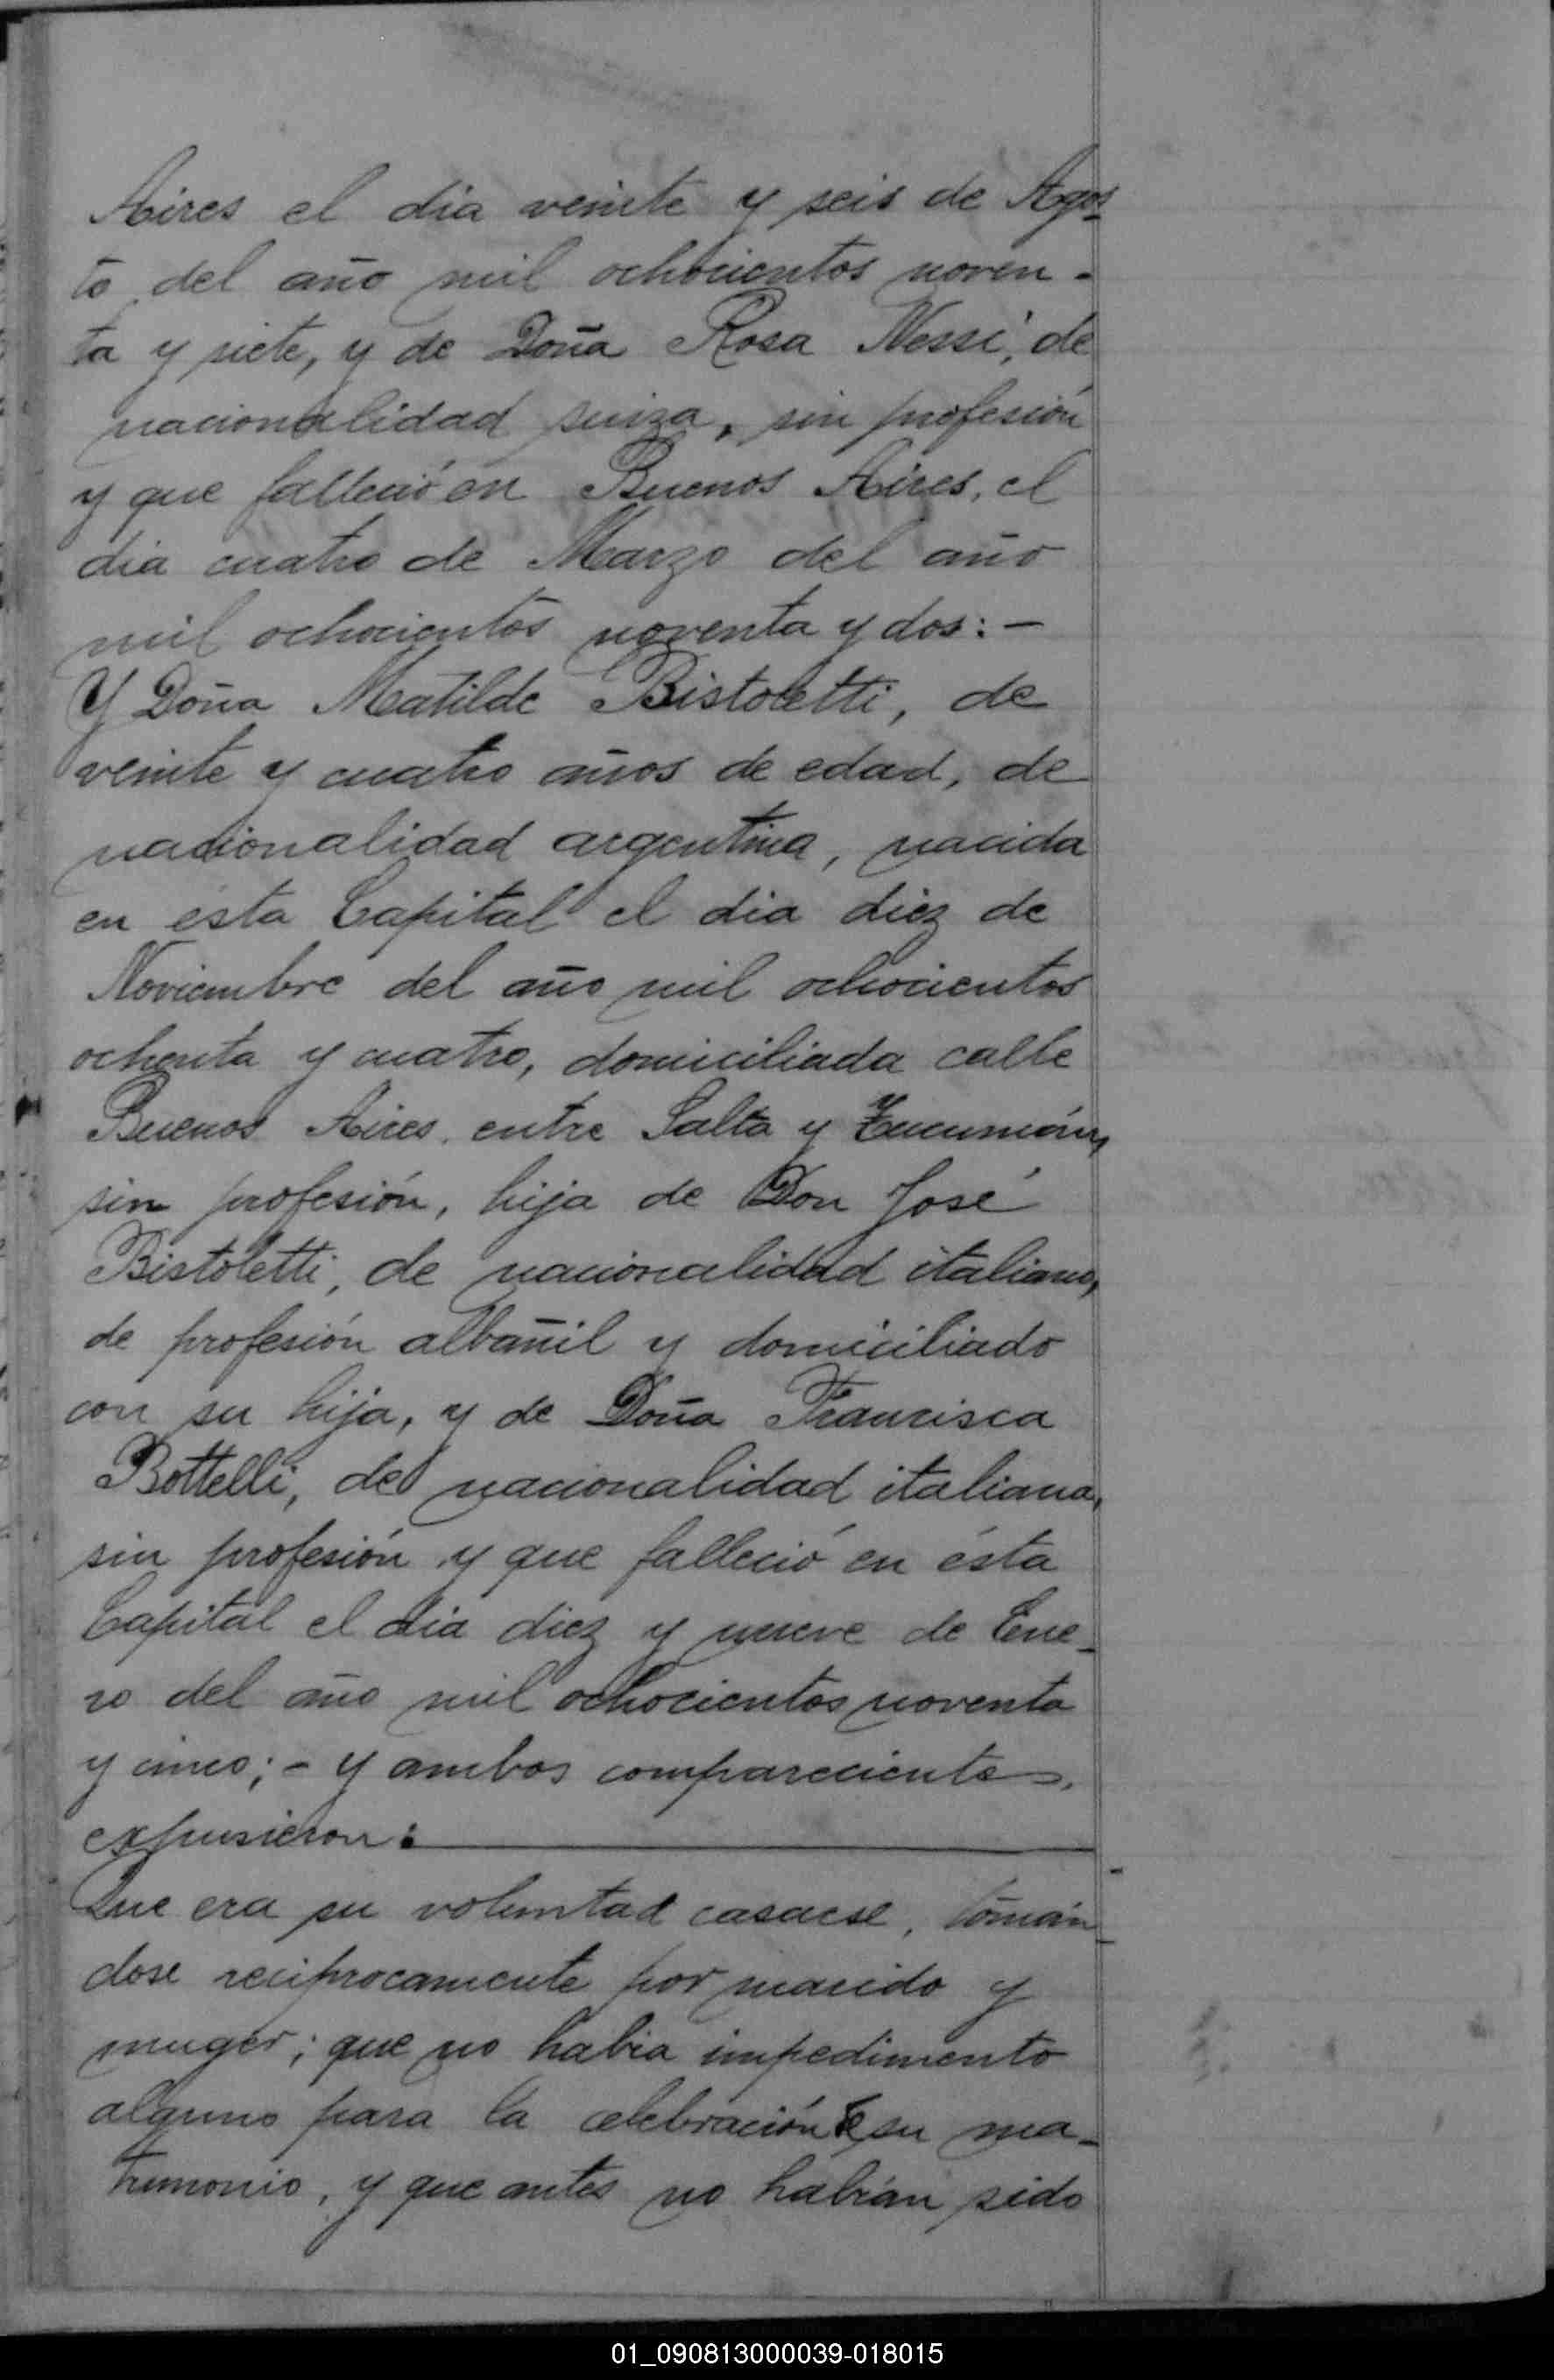 Aires el dia veinte y seis de Agos-
to del año mil ochocientos noven-
ta y siete, y de Doña Rosa Nessi, de
nacionalidad suiza, sin profesión
y que falleció en Buenos Aires, el
dia cuatro de Marzo del año
mil ochocientos noventa y dos: -
Y Doña Matilde Bistoletti, de
veinte y cuatro años de edad, de
nacionalidad argentina, nacida
en ésta Capital el dia diez de
Noviembre del año mil ochocientos
ochenta y cuatro, domiciliada calle
Buenos Aires, entre Salta y Tucumán,
sin profesión, hija de Don José
Bistoletti, de nacionalidad italiano,
de profesión albañil y domiciliado
con su hija, y de Doña Francisca
Bottelli, de nacionalidad italiana,
sin profesión y que falleció en ésta
Capital el dia diez y nueve de Ene-
ro del año mil ochocientos noventa
y cinco; - y ambos comparecientes,
expusieron:
Que era su voluntad casarse, tomán-
dose reciprocamente por marido y
muger; que no habia impedimento
alguno para la celebración de su ma-
trimonio, y que antes no habían sido
01_090813000039-018015